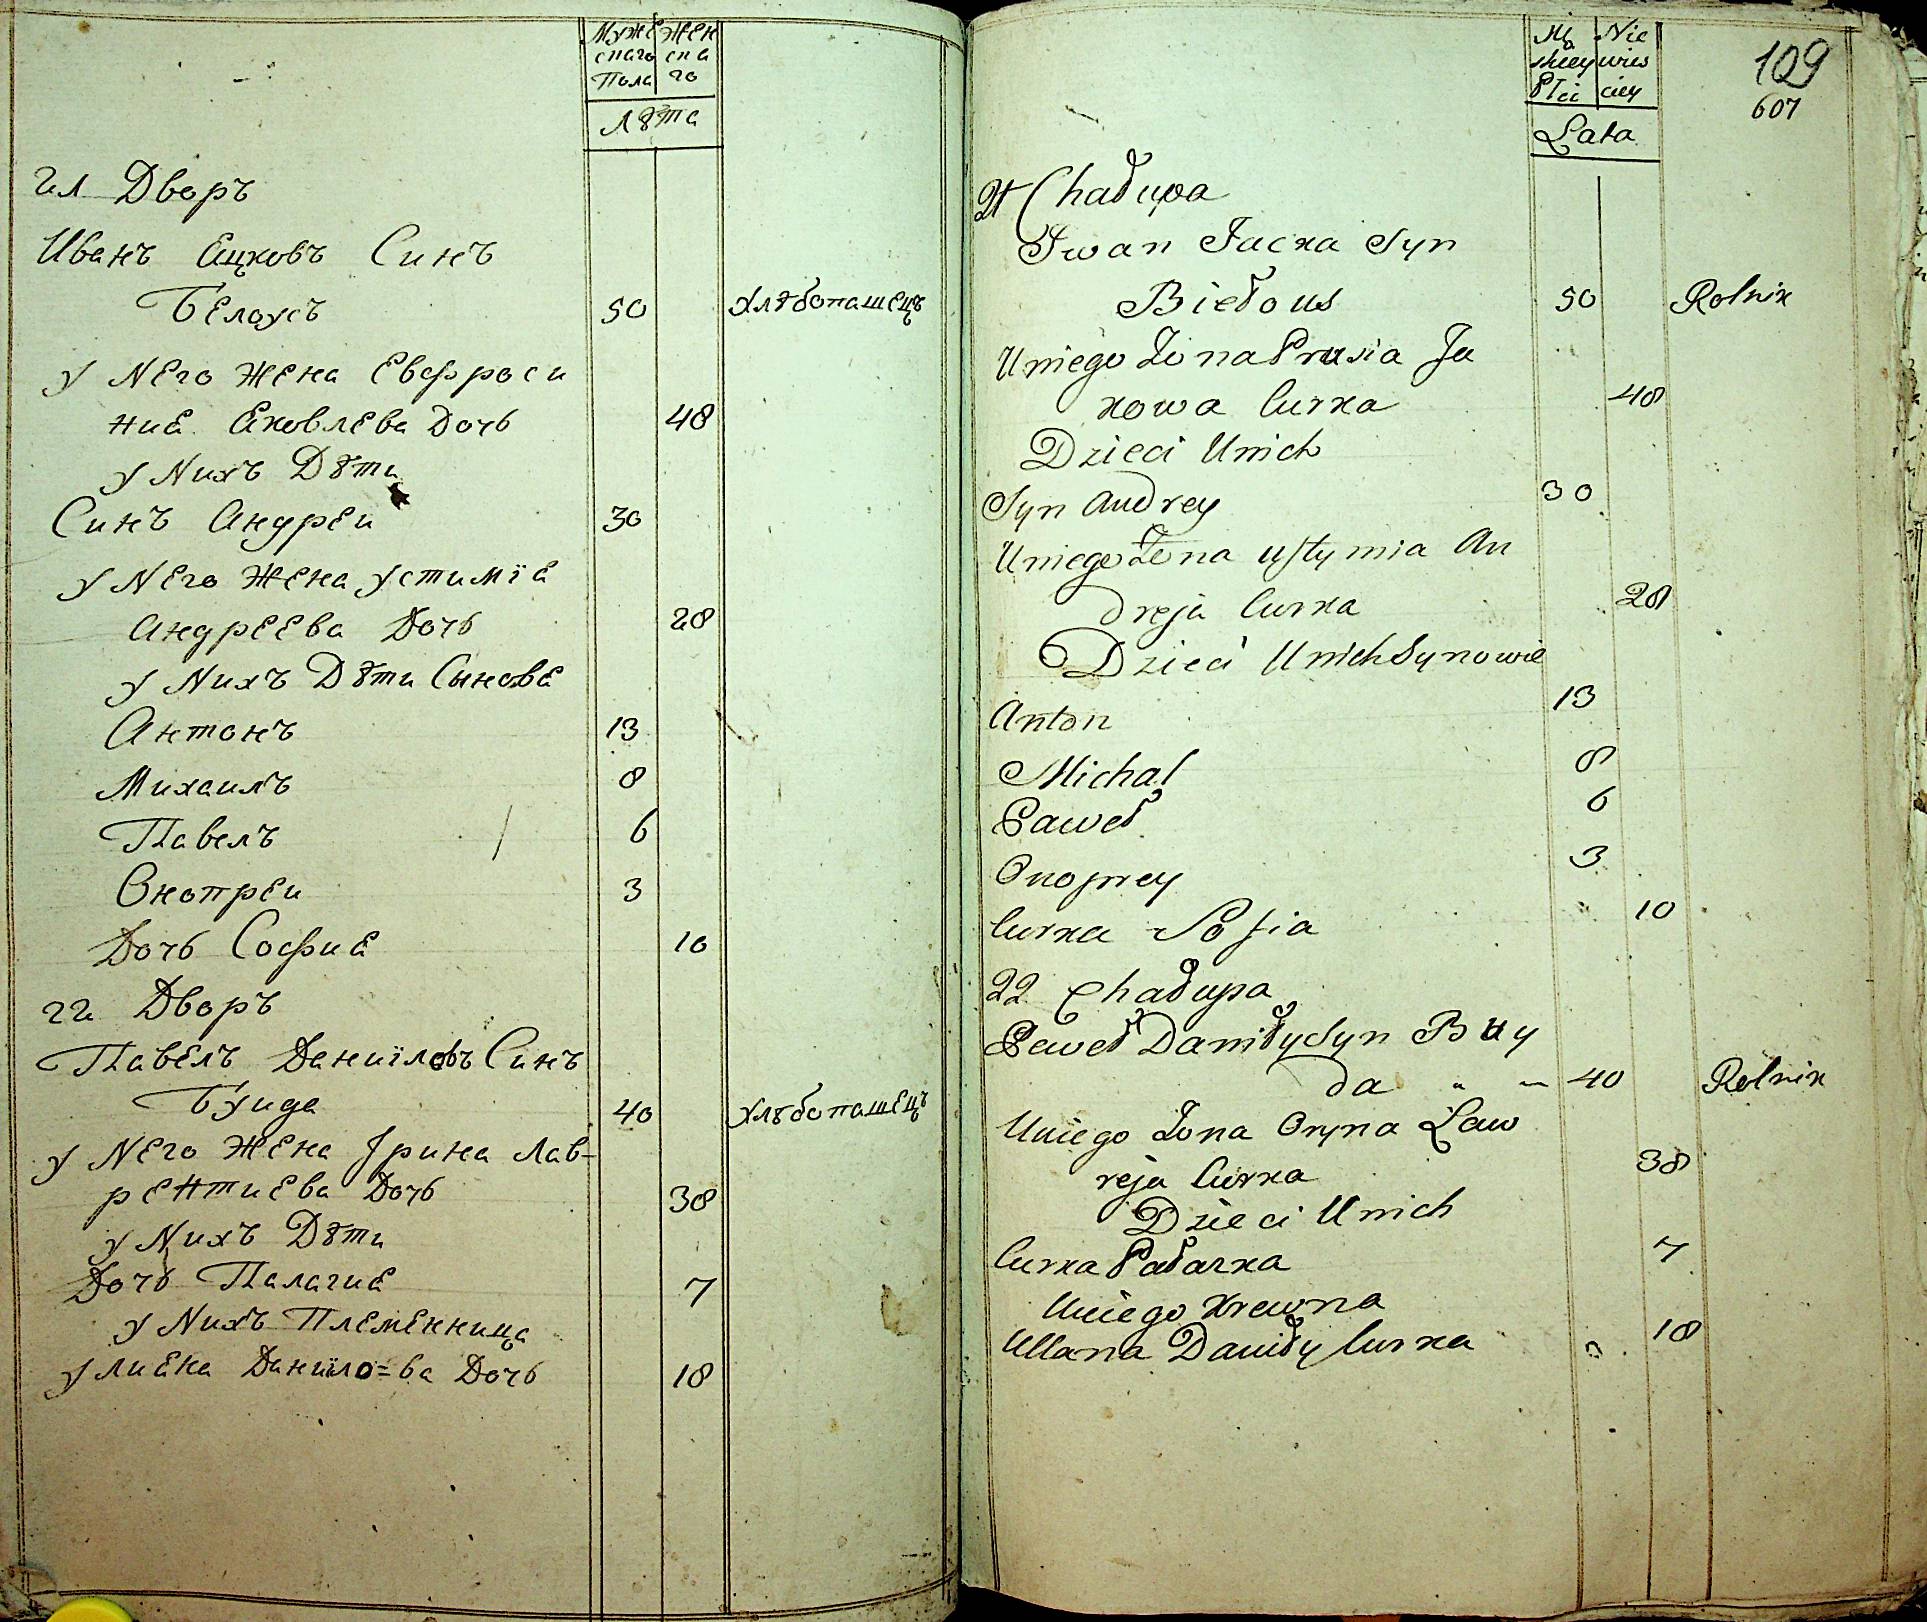 Мужe Жен
скаго ска
Пола го
Лѣта
21 Дворъ
Иванъ Ецковъ Синъ
Белоусъ 50 Хлѣбопашецъ
у Него Жена Евфроси
ние Яковлева Дочь 48
у Нихъ Дѣти
Синъ Андреи 30
у Него Жена Устимїе
Андреева Дочь 28
у Нихъ Дѣти Сынове
Антонъ 13
Михаилъ 8
Павелъ 6
Онопреи 3
Дочь Софие 10
22 Дворъ
Павелъ Данїиловъ Синъ
Буида 40 Хлѣбопашецъ
у Него Жена Ірина Лав-
рентиева Дочь 38
у Нихъ Дѣти
Дочь Палагие 7
у Нихъ Племенница
Улиена Данїило=ва Дочь 18
Mę Nie
skiey wies
Płci ciey
Lata
109
607
21 Chałupa
Iwan Jacka Syn
Biełous 50 Rolnik
U niego Żona Prusia Ja
kowa Curka 48
Dzieci U nich
Syn Andrey 30
U niego Żona Ustymia An
dreja Curka 28
Dzieci U nich Synowie
Anton 13
Michal 8
Paweł 6
Onoprey 3
Curka Sofia 10
22 Chałupa
Paweł Daniły Syn Buy
da " — 40 Rolnik
U niego Żona Oryna Law
reja Curka 38
Dzieci U nich
Curka Pałazka 7
U niego Krewna
Ullana Daniły Curka 18